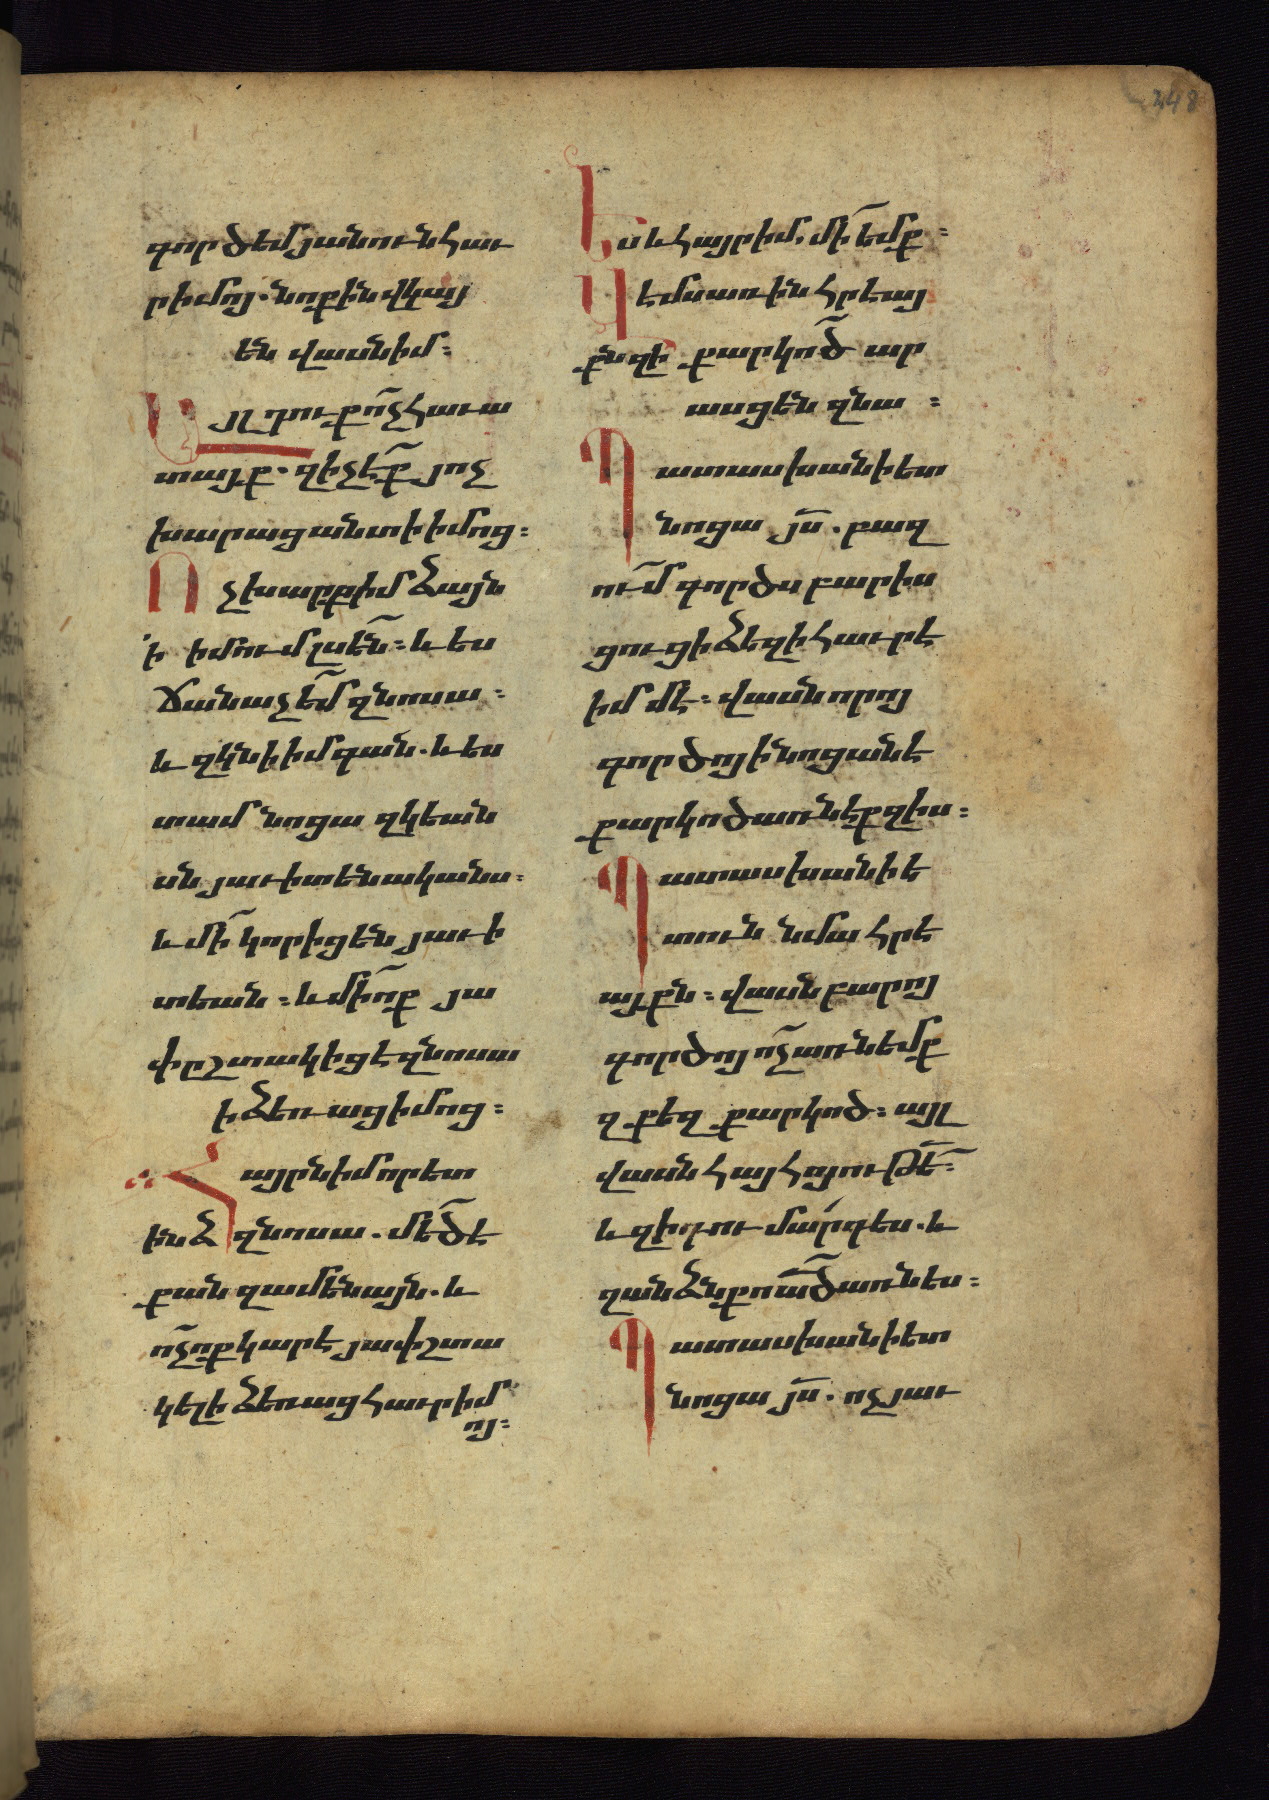 248
գործեմ յանուն հաւ
րիմոյ. նոքին վկայ
են վասն իմ։
Այլ դուք ո՜չ հաւա
տայք. զի չէ՜ք յոչ
խարաց անտի իմոց։
Ոչխարք իմ ձայն
ի իմում լսե՜ն։ և ես
ճանաչե՜մ զնոսա։
և զկնի իմ գան. և ես
տամ նոցա զկեան
սն յաւիտենականս։
և մի՜ կորիցեն յաւի
տեան։ և մի ո՜ք յա
փըշտակիցէ զնոսա
ի ձեռաց իմոց։
Հայրն իմ որ ետ
ինձ զնոսա. մե՜ծ է
քան զամենայն. և
ո՜չ ոք կարէ յափշտա
կել ի ձեռաց հաւր իմ
ոյ։
Ես և հայր իմ, մի՜ եմք։
Դ էմս առին հրեայ
քն զի քարկո՜ծ ար
ասցեն զնա։
Պատասխանի ետ
նոցա յս՜. բազ
ու՜մ գործս բարիս
ցուցի ձեզ ի հաւրէ
իմմէ։ վասն որոյ
գործոյ ի նոցանէ
քարկոծ առնէք զիս։
Պատասխանի ե
տուն նմա հրէ
այքն։ վասն բարոյ
գործոյ ո՜չ առնեմք
զքեզ քարկոծ։ այլ
վասն հայհոյութե՜։
և զի դու մարդ ես. և
զանձն քո ա՜ծ առնես։
Պատասխանի ետ
նոցա յս՜. ոչ յաւ